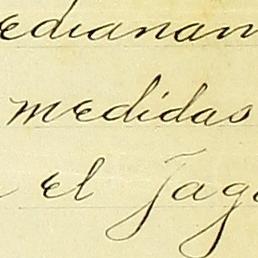 edianam
medidas
el Jaga